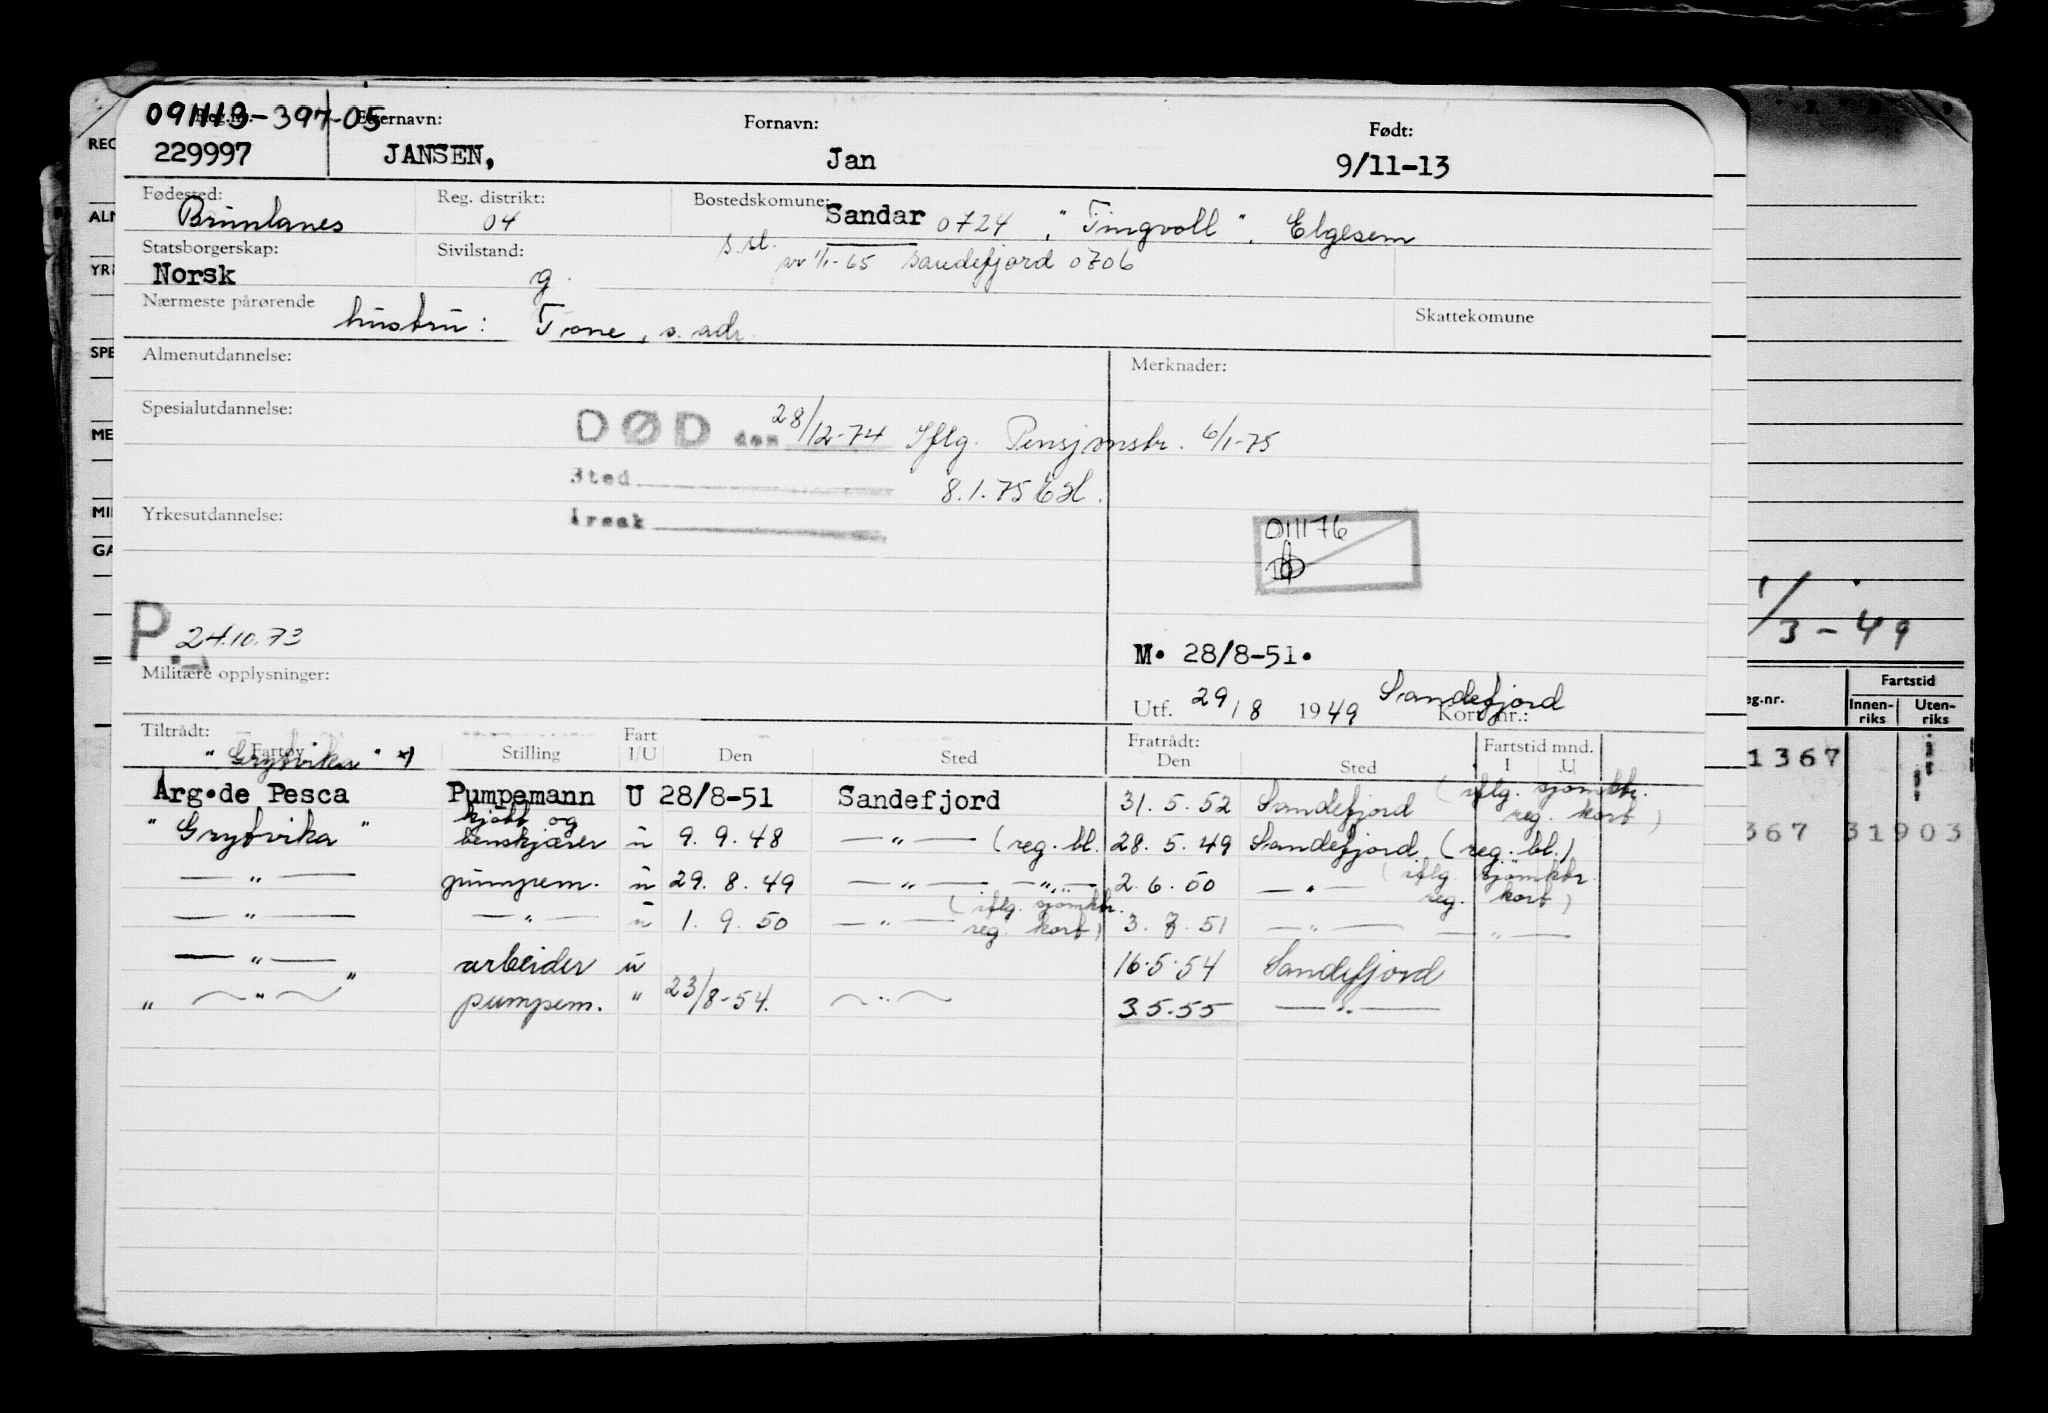 091113-397-05
Reg.nr. Etternavn: Fornavn: Født:
229997 JANSEN, Jan 9/11-13
Fødested: Reg. distrikt: Bostedskomune:
Brunlanes 04 Sandar 0724, "Tingvoll", Elgesem
Statsborgerskap: Sivilstand:
Norsk g. 1/1-65 Sandefjord 0706
Nærmeste pårørende Skattekomune
hustru: Tone, s. adr.
Almenutdannelse: Merknader:
Spesialutdannelse:
DØD den 28/12-74 Iflg. Pensjonstr. 6/1-75
Sted 8.1.75
Yrkesutdannelse: Årsak
011176
P. 24.10.73
M. 28/8-51.
Militære opplysninger:
Utf. 29/8 1949 Sandefjord
Kort nr.:
Tiltrådt: Fratrådt: Fartstid mnd.
Fartøy Stilling Fart I/U Den Sted Den Sted I U
"Grytvika"
Arg.de Pesca Pumpemann U 28/8-51 Sandefjord 31.5.52 Sandefjord (iflg. sjømktr. reg. kort)
"Grytvika" kjøtt og benskjærer u 9.9.48 — " — (reg. bl.) 28.5.49 Sandefjord (reg. bl.)
— " — pumpem. u 29.8.49 — " — — " — 2.6.50 — " — (iflg. sjømktr. reg. kort)
— " — — " — u 1.9.50 — " — (iflg. sjømktr. reg. kort) 3.7.51 — " — — " —
— " — arbeider u 16.5.54 Sandefjord
" — " — " pumpem. " 23/8-54. — " — 3.5.55 — " —
REG
ALM
YRK
SPE
ME
MI
GA
1/3-49
eg.nr. Fartstid
Innen-riks Uten-riks
1367
367 31903